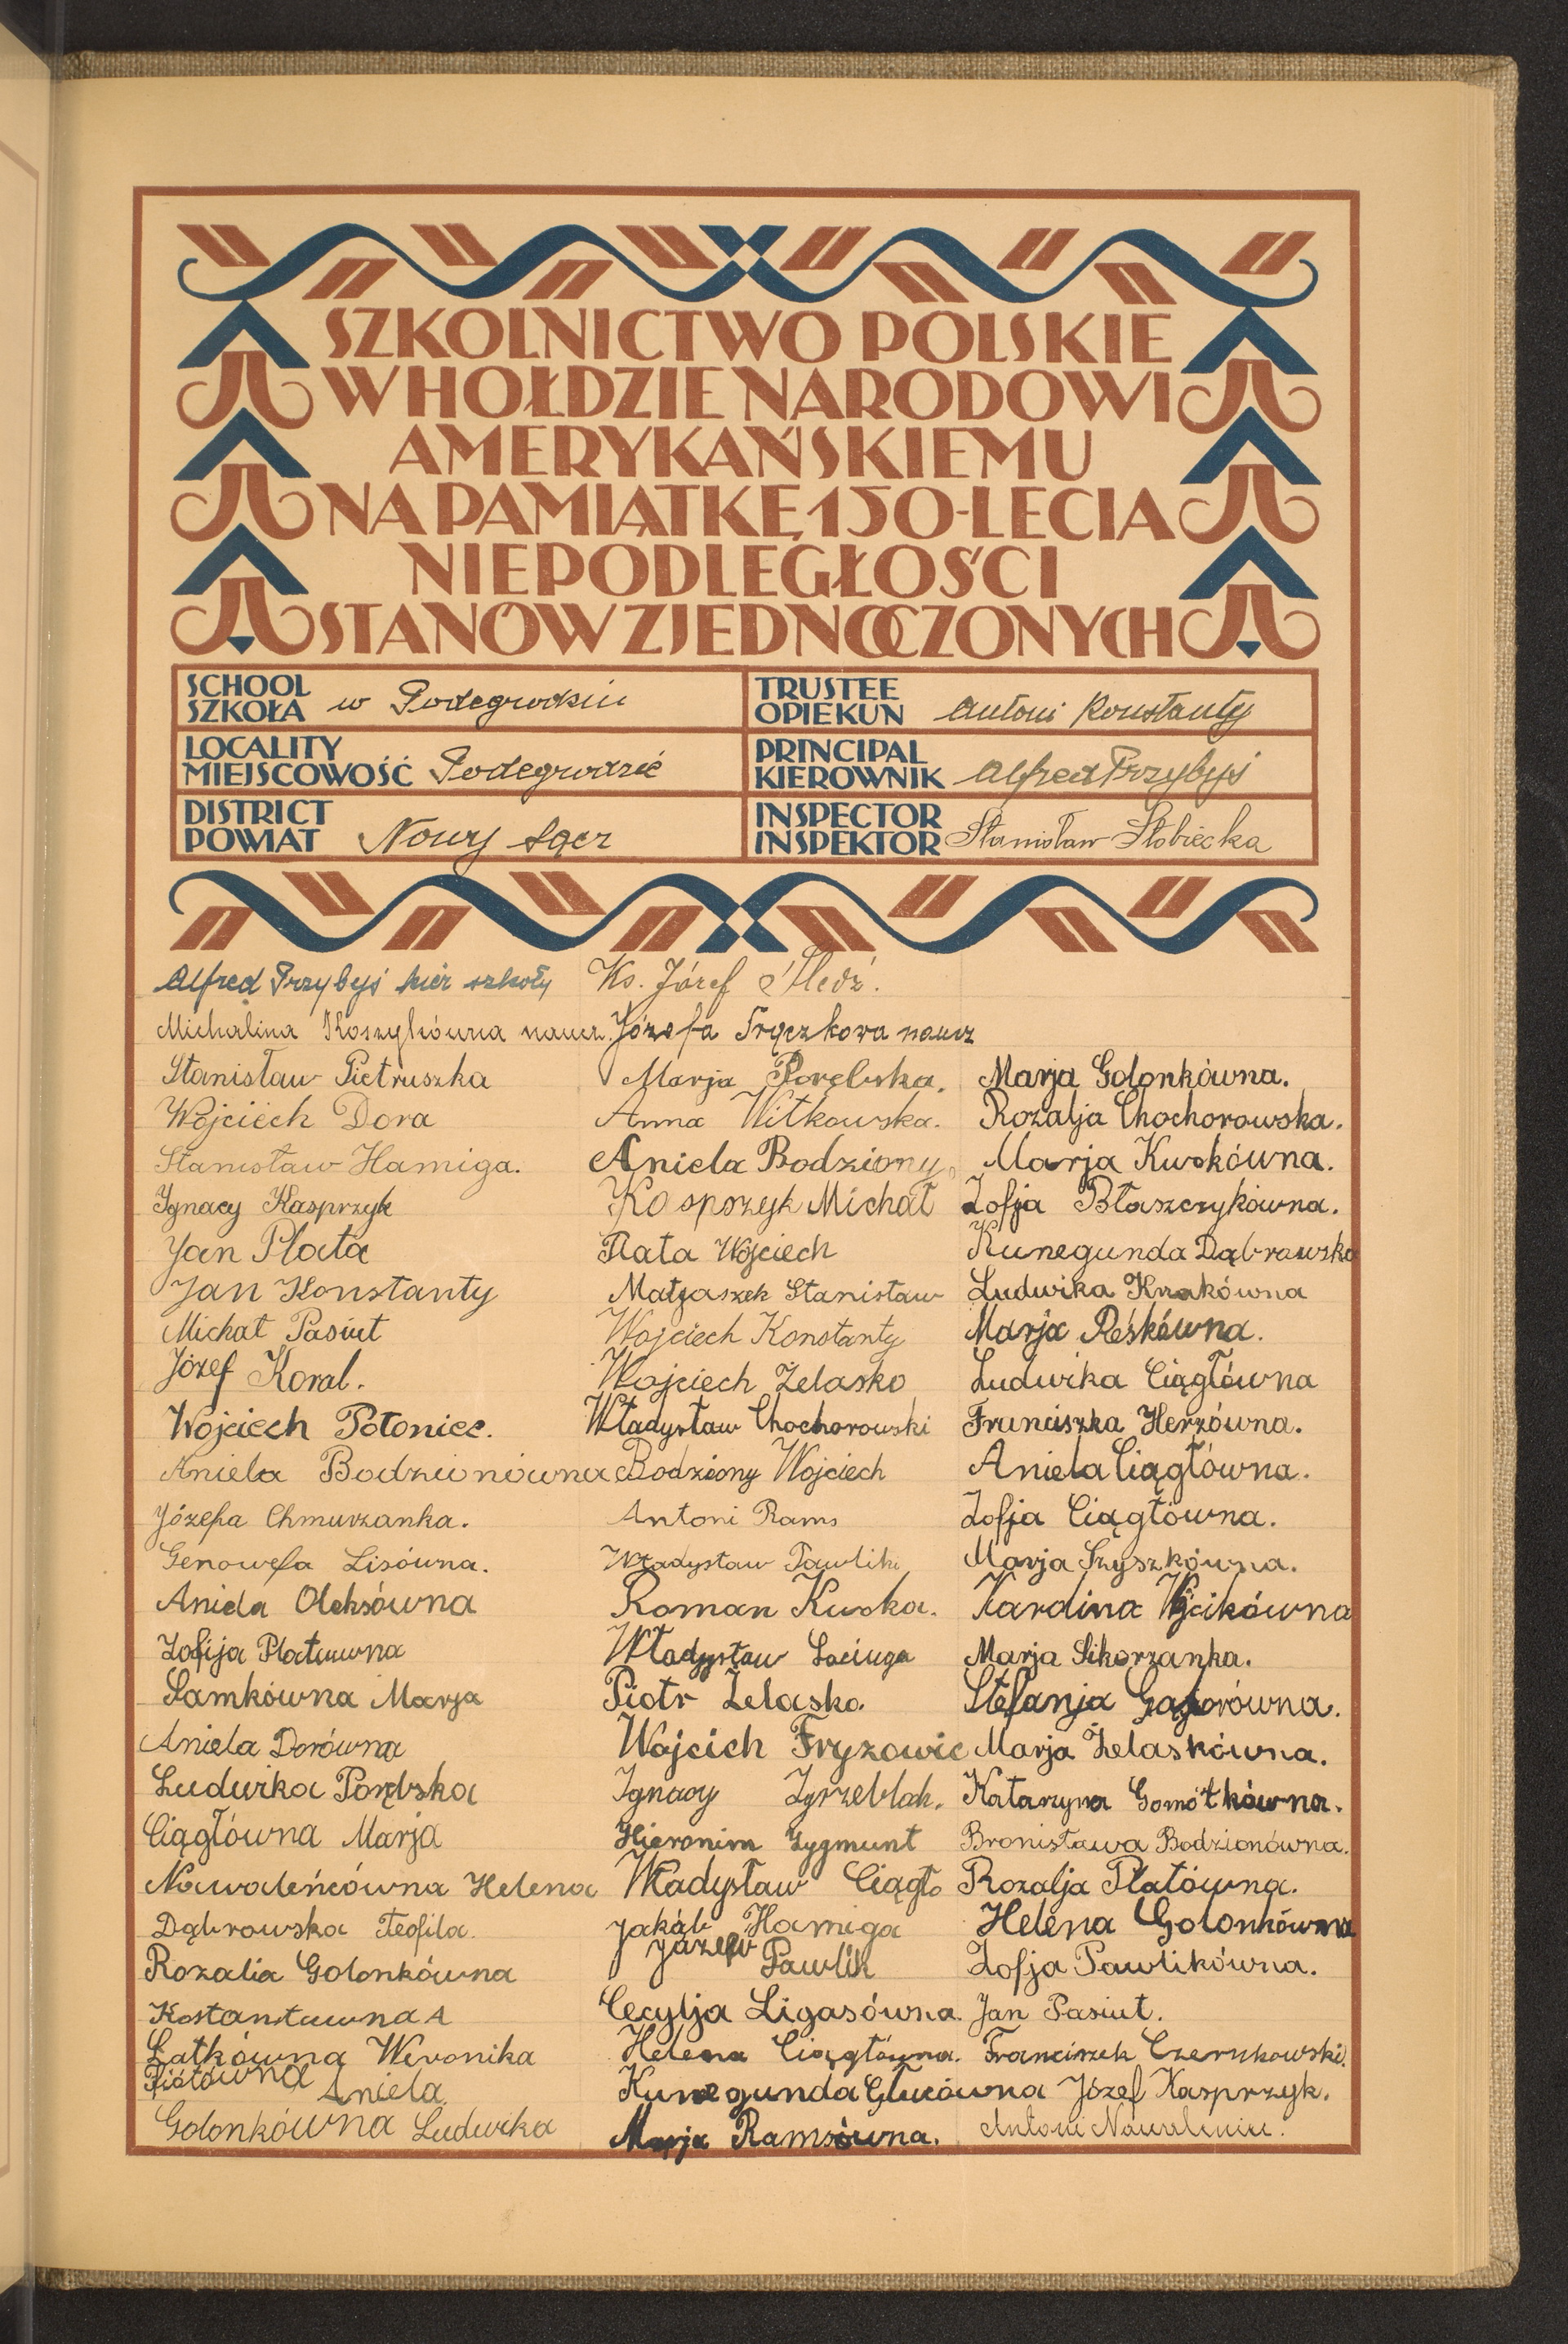 SZKOLNICTWO POLSKIE
W HOŁDZIE NARODOWI
AMERYKAŃSKIEMU
NA PAMIĄTKĘ 150-LECIA
NIEPODLEGŁOŚCI
STANÓW ZJEDNOCZONYCH
SCHOOL
SZKOŁA w Podegrodziu
TRUSTEE
OPIEKUN Antoni Konstanty
LOCALITY
MIEJSCOWOŚĆ Podegrodzie
PRINCIPAL
KIEROWNIK Alfred Przybyś
DISTRICT
POWIAT Nowy Sącz
INSPECTOR
INSPEKTOR Stanisław Słobiecka
Alfred Przybyś kier szkoły
Michalina Koszykówna naucz.
Stanisław Pietruszka
Wojciech Dora
Stanisław Hamiga.
Ignacy Kasprzyk
Jan Plata
Jan Konstanty
Michał Pasiut
Józef Koral.
Wojciech Potoniec.
Aniela Bodzionówna
Józefa Chmurzanka.
Genowefa Lisówna.
Aniela Oleksówna
Zofija Platuwna
Samkówna Marja
Aniela Dorówna
Ludwika Porębska
Ciągłówna Marja
Nawaleńcówna Helena
Dąbrowska Teofila.
Rozalia Golonkówna
Kostantuwna A
Łatkówna Weronika
Aniela
Golonkówna Ludwika
Ks. Józef Śledź.
Józefa Trączkowa naucz
Marja Porębska.
Anna Witkowska.
Aniela Bodziony.
Kosprzyk Michał
Plata Wojciech
Małgaszek Stanisław
Wojciech Konstanty
Wojciech Żelasko
Władysław Chochorowski
Bodziony Wojciech
Antoni Rams
Władysław Pawlik
Roman Kuska.
Władysław Łaciuga
Piotr Żelasko.
Wojcich Fryzowic
Ignacy Zgrzeblak.
Hieronim Zygmunt
Władysław Ciągło
Jakób Hamiga
Józef Pawlik
Cecylja Ligasówna.
Helena Ciągłówna.
Kunegunda Glucówna
Marja Ramsówna.
Marja Golonkówna.
Rozalja Chochorowska.
Marja Kuskówna.
Zofja Błaszczykówna.
Kunegunda Dąbrowska
Ludwika Knakówna
Marja Reśkówna.
Ludwika Ciągłówna
Franciszka Herzówna.
Aniela Ciągłówna.
Zofja Ciągłówna.
Marja Szyszkówna.
Karolina Wójcikówna
Marja Sikorzanka.
Stefanja Gąsiorówna.
Marja Żelaskówna.
Katarzyna Gomółkówna.
Bronisława Bodzionówna.
Rozalja Platówna.
Helena Golonkówna
Zofja Pawlikówna.
Jan Pasiut.
Franciszek Czernkowski.
Józef Kasprzyk.
Antoni